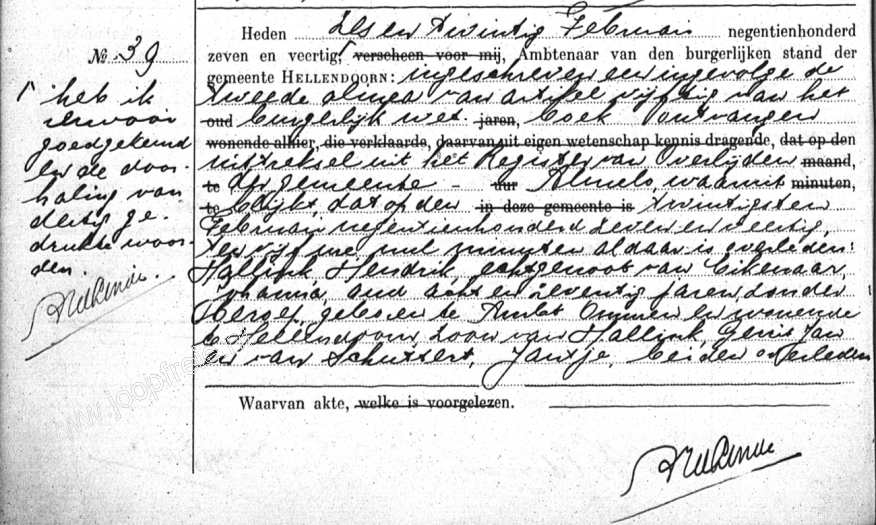 No. 39
Heden zes en twintig Februari negentienhonderd
zeven en veertig, Γ verscheen voor mij, Ambtenaar van den burgerlijken stand der
gemeente HELLENDOORN: ingeschreven en ingevolge de
tweede alinea van artikel vijftig van het
oud Burgerlijk Wet- jaren, boek ontvangen
wonende alhier, die verklaarde, daarvan uit eigen wetenschap kennis dragende, dat op den
uittreksel uit het Register van Overlijden maand,
te der gemeente - uur Almelo, waaruit minuten,
te blijkt, dat op den in deze gemeente is twintigsten
Februari negentienhonderd zeven en veertig,
ten vijf ure nul minuten aldaar is overleden:
Hallink Hendrik, echtgenoot van Eikenaar,
Johanna, oud acht en zeventig jaren, zonder
beroep, geboren te Ambt Ommen en wonende
te Hellendoorn, zoon van Hallink, Gerrit Jan
en van Schuttert, Jantje, beiden overleden
Waarvan akte, welke is voorgelezen.
Γ heb ik
hiervoor
goedgekeurd
en de door-
haling van
dertig ge-
drukte woor-
den.
www.joopfre